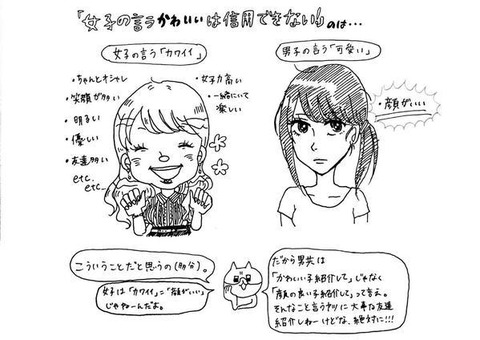 「女子の言うかわいいは信用できない」のは…
女子の言う「カワイイ」
・ちゃんとオシャレ
・笑顔が多い
・明るい
・優しい
・友達多い
etc.
etc...
・女子力高い
・一緒にいて
楽しい
男子の言う「可愛い」
・顔がいい
こういうことだと思うの(多分)。
女子は「カワイイ」=「顔がいい」
じゃねーんだよ。
だから男共は
「かわいい子紹介して」じゃなく
「顔の良い子紹介して」って言え。
そんなこと言うヤツに大事な友達
紹介しねーけどな、絶対に!!!